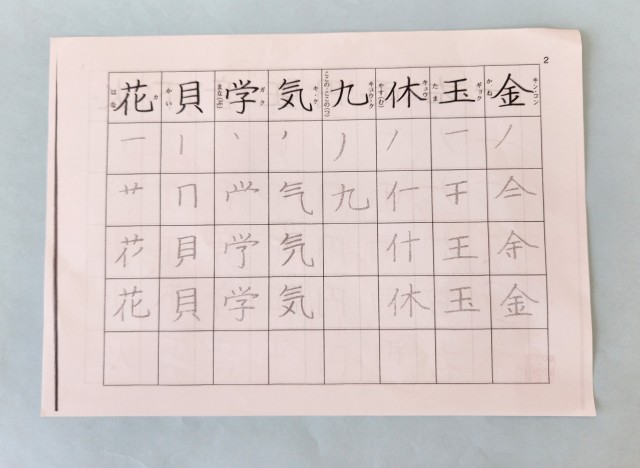 2
花 貝 学 気 九 休 玉 金
はな カ かい まな(ぶ) ガク キ・ケ ここの・ここの(つ) キュウ・ク やす(む) キュウ たま ギョク かね キン・コン
一 丨 丶 丿 丿 丿 一 丿
艹 冂 ⺍ 气 九 仁 干 亼
貝 王
花 貝 学 気 休 玉 金